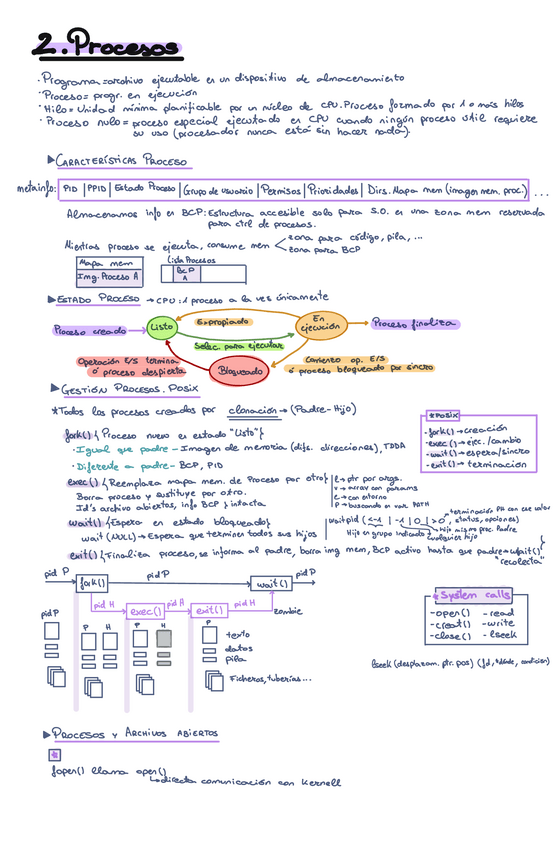 2. Procesos
· Programa = archivo ejecutable en un dispositivo de almacenamiento
· Proceso = progr. en ejecución
· Hilo = Unidad mínima planificable por un núcleo de CPU. Proceso formado por 1 o más hilos
· Proceso nulo = proceso especial ejecutado en CPU cuando ningún proceso útil requiere
su uso (procesador nunca está sin hacer nada).
▶ CARACTERÍSTICAS PROCESO
metainfo: PID | PPID | Estado Proceso | Grupo de usuario | Permisos | Prioridades | Dirs. Mapa mem (imagen mem. proc.) ...
Almacenamos info en BCP: Estructura accesible solo para S.O. en una zona mem reservada
para ctrl de procesos.
Mientras proceso se ejecuta, consume mem
zona para código, pila, ...
zona para BCP
Mapa mem
Img. Proceso A
Lista Procesos
BCP
A
▶ ESTADO PROCESO → CPU: 1 proceso a la vez únicamente
Proceso creado
Listo
Expropiado
En ejecución
Proceso finaliza
Selec. para ejecutar
Operación E/S termina
ó proceso despierta
Bloqueado
Comienzo op. E/S
ó proceso bloqueado por sincro
▶ GESTIÓN PROCESOS. POSIX
*Todos los procesos creados por clonación → (Padre-Hijo)
*POSIX
-fork() → creación
-exec() → ejec./cambio
-wait() → espera/sincro
-exit() → terminación
fork() { Proceso nuevo en estado "Listo" }
· Igual que padre - Imagen de memoria (difs. direcciones), TDDA
· Diferente a padre - BCP, PID
exec() { Reemplaza mapa mem. de Proceso por otro }
Borra proceso y sustituye por otro.
Id's archivo abiertos, info BCP } intacta
l → ptr por args.
v → array con params
e → con entorno
p → buscando en var. PATH
wait() { Espera en estado bloqueado }
wait (NULL) → Espera que terminen todos sus hijos
waitpid (<-1 | -1 | 0 | >0, status, opciones)
Hijo mismo proc. Padre
Hijo en grupo indicado
cualquier hijo
exit() { Finaliza proceso, se informa al padre, borra img mem, BCP activo hasta que padre → wait() }
"recolecta"
pid P
fork()
pid P
wait()
pid P
pid H
exec()
pid H
exit()
pid H
zombie
pid P
P H
P H
P
texto
datos
pila
Ficheros, tuberías...
*System calls
-open() - read
-creat() - write
-close() - lseek
▶ PROCESOS Y ARCHIVOS ABIERTOS
*
fopen() llama open()
directa comunicación con Kernell